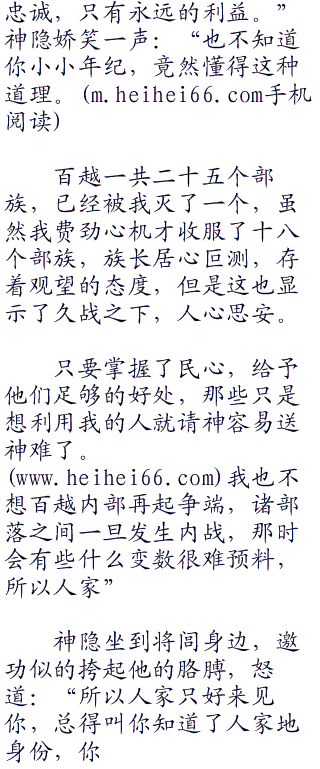 忠诚，只有永远的利益。”
神隐娇笑一声：“也不知道
你小小年纪，竟然懂得这种
道理。(m.heihei66.com手机
阅读)
百越一共二十五个部
族，已经被我灭了一个，虽
然我费劲心机才收服了十八
个部族，族长居心叵测，存
着观望的态度，但是这也显
示了久战之下，人心思安。
只要掌握了民心，给予
他们足够的好处，那些只是
想利用我的人就请神容易送
神难了。
(www.heihei66.com)我也不
想百越内部再起争端，诸部
落之间一旦发生内战，那时
会有些什么变数很难预料，
所以人家”
神隐坐到将闾身边，邀
功似的挎起他的胳膊，怒
道：“所以人家只好来见
你，总得叫你知道了人家地
身份，你